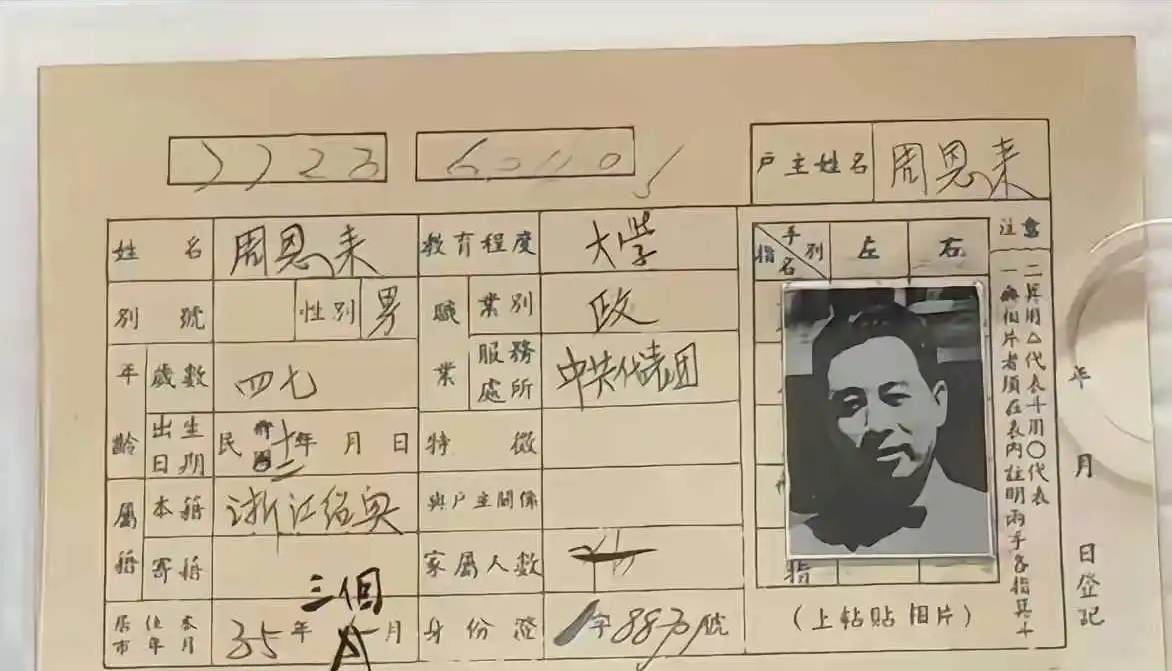 户主姓名 周恩来
姓名 周恩来 教育程度 大学
手别 指名 左 右
注意
别號 性别 男 職業 業别 政
年齡 歲數 四七 服務處所 中共代表团
出生日期 民 年 月 日 特徵
屬籍 本籍 浙江绍兴 與户主關係
寄籍 家屬人數
三個
居住本市年月 35年 月 身份證 字 號
指
(上帖贴相片)
二 其用△代表十用○代表
一 無相片者須在表内註明兩手各指其十
年 月 日登記